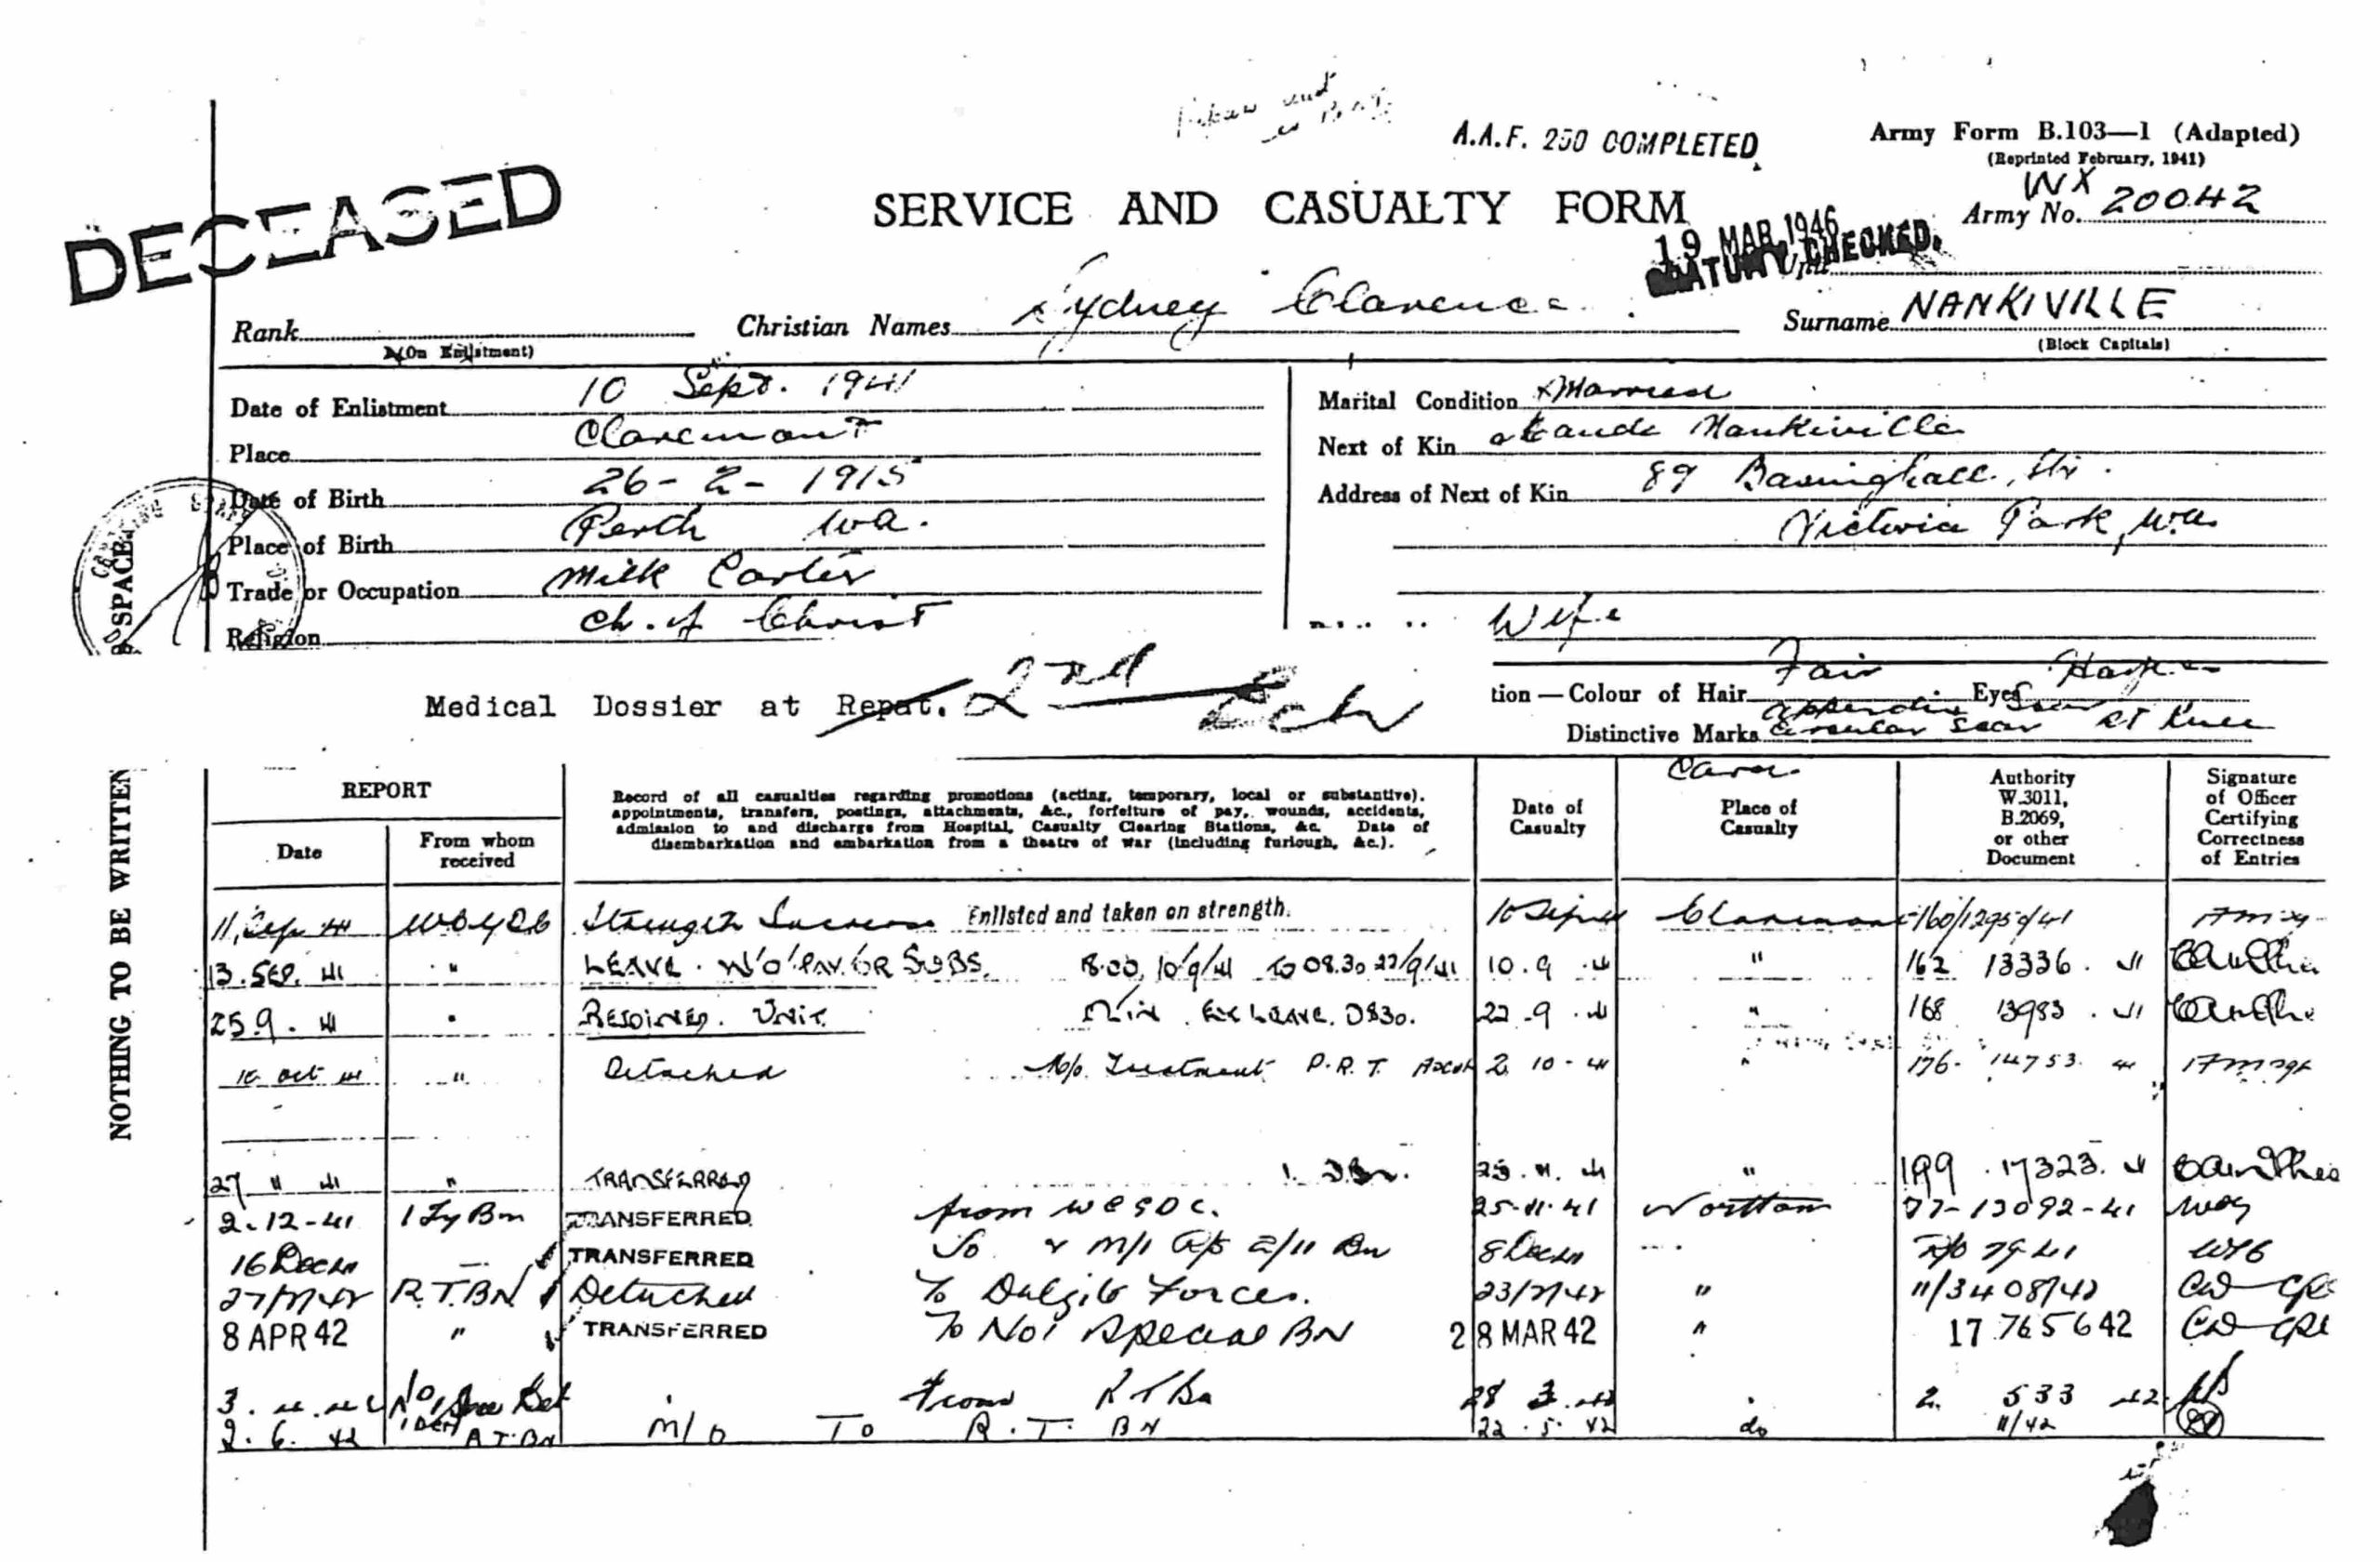 A.A.F. 250 COMPLETED
Army Form B.103—1 (Adapted)
(Reprinted February, 1941)
DECEASED
SERVICE AND CASUALTY FORM
Army No. WX 20042
19 MAR 1946
CHECKED.
Unit
Rank
(On Enlistment)
Christian Names Sydney Clarence
Surname NANKIVILLE
(Block Capitals)
Date of Enlistment 10 Sept. 1941
Place Claremont
Date of Birth 26-2-1915
Place of Birth Perth W.A.
Trade or Occupation Milk Carter
Religion Ch. of Christ
Marital Condition Married
Next of Kin Nankiville
Address of Next of Kin 89 Basinghall Str.
Victoria Park, W.A.
Wife
SPACE
Medical Dossier at Repat. 2nd Ech
tion — Colour of Hair Fair Eyes
Distinctive Marks appendix scar
circular scar Rt Knee
NOTHING TO BE WRITTEN
REPORT
Date
From whom received
Record of all casualties regarding promotions (acting, temporary, local or substantive),
appointments, transfers, postings, attachments, &c., forfeiture of pay, wounds, accidents,
admission to and discharge from Hospital, Casualty Clearing Stations, &c. Date of
disembarkation and embarkation from a theatre of war (including furlough, &c.).
Date of Casualty
Place of Casualty
Authority W.3011, B.2069, or other Document
Signature of Officer Certifying Correctness of Entries
11 Sep 41 Strength Increase Enlisted and taken on strength. 10 Sep 41 Claremont 160/12959/41
13. SEP. 41 " LEAVE W'O' PAY OR SUBS. 18.00, 10/9/41 TO 08.30 22/9/41 10.9.41 " 162 13336. 41
25.9.41 " REJOINED UNIT EX LEAVE. 0830. 22.9.41 " 168 13983. 41
10 Oct 41 " Detached Treatment P.R.T. Ascot 2 10-41 " 176- 14753. 41
27 " 41 " TRANSFERRED 25.11.41 " 199 17323. 41
2-12-41 TRANSFERRED from 25-11-41 Northam 77-13092-41
16 Dec 41 TRANSFERRED To 2/11 Bn 8 Dec 41
R.T.BN Detached To Dalgib Forces. " 11/3408/42
8 APR 42 " TRANSFERRED To No1 Special BN 28 MAR 42 " 17 7656 42
From RTBn 28 3 42 2. 533 42
2. 6. 42 M/O To R.T. BN 22.5.42 do 11/42